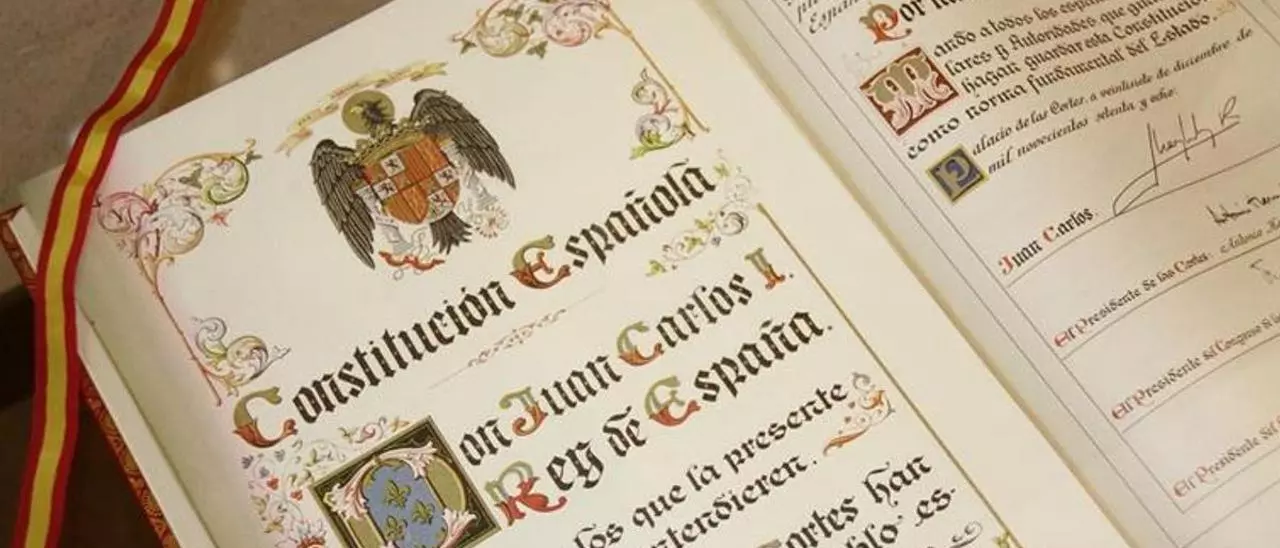 Constitución Española
Don Juan Carlos I.
Rey de España.
los que la presente
entendieren.
Cortes han
es-
Españ
Por
Mando a todos los
lares y Autoridades que
hagan guardar esta Constitución
como norma fundamental del Estado.
Palacio de las Cortes, a veintisiete de diciembre de
mil novecientos setenta y ocho.
Juan Carlos.
El Presidente de las Cortes: Antonio
El Presidente del Congreso de
El Presidente del